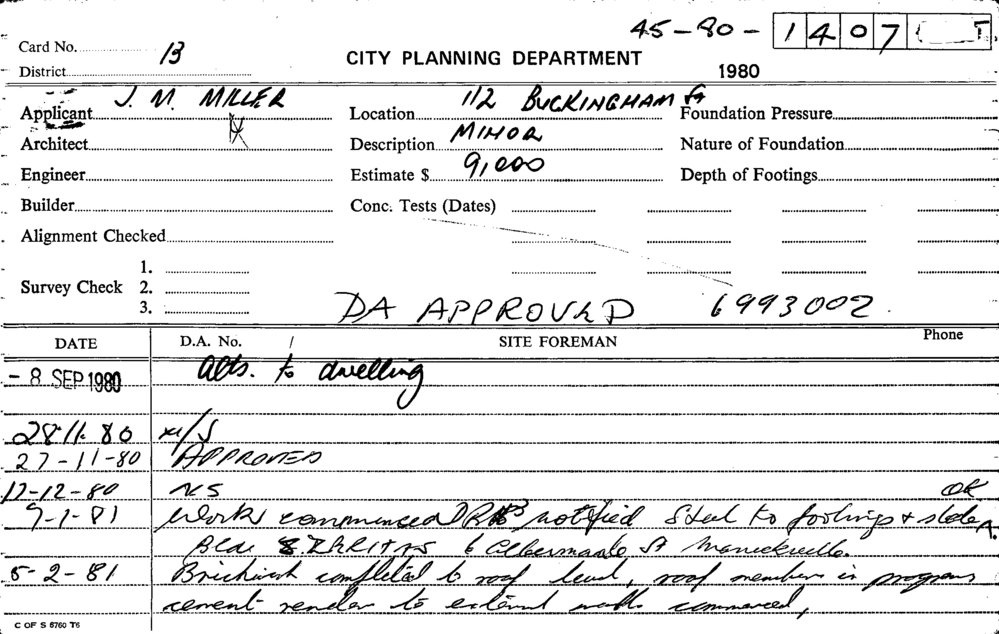 45-80-1407 T
Card No.
District 13
CITY PLANNING DEPARTMENT
1980
Applicant J. M. MILLER
Location 112 BUCKINGHAM St
Foundation Pressure
Architect
Description MINOR
Nature of Foundation
Engineer
Estimate $ 9,000
Depth of Footings
Builder
Conc. Tests (Dates)
Alignment Checked
Survey Check 1.
2.
3.
DA APPROVED 6993002
DATE D.A. No. SITE FOREMAN Phone
- 8 SEP 1980 Alts. to dwelling
28.11.80 N/S
27-11-80 APPROVED
17-12-80 NS OK
9-1-81 Work commenced notified Steel to footings + slab
Albermarle St Marrickville.
5-2-81 Brickwork completed to roof level, roof members in progress
cement render to external walls commenced,
C OF S 5760 T6